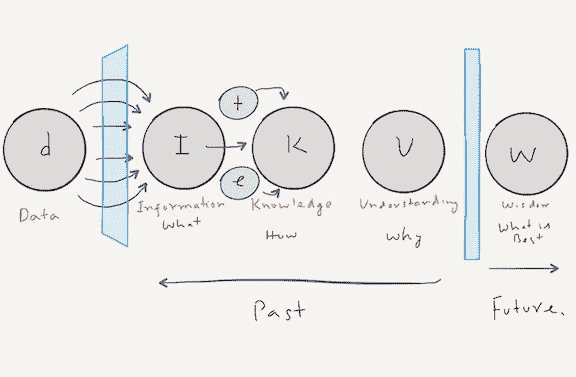 d
I
t
e
K
U
W
Data
Information
What
Knowledge
How
Understanding
Why
Wisdom
What is
Best
Past
Future.